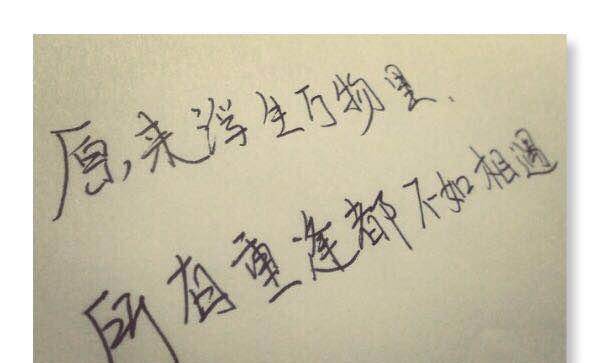 原来浮生万物里.
所有重逢都不如相遇